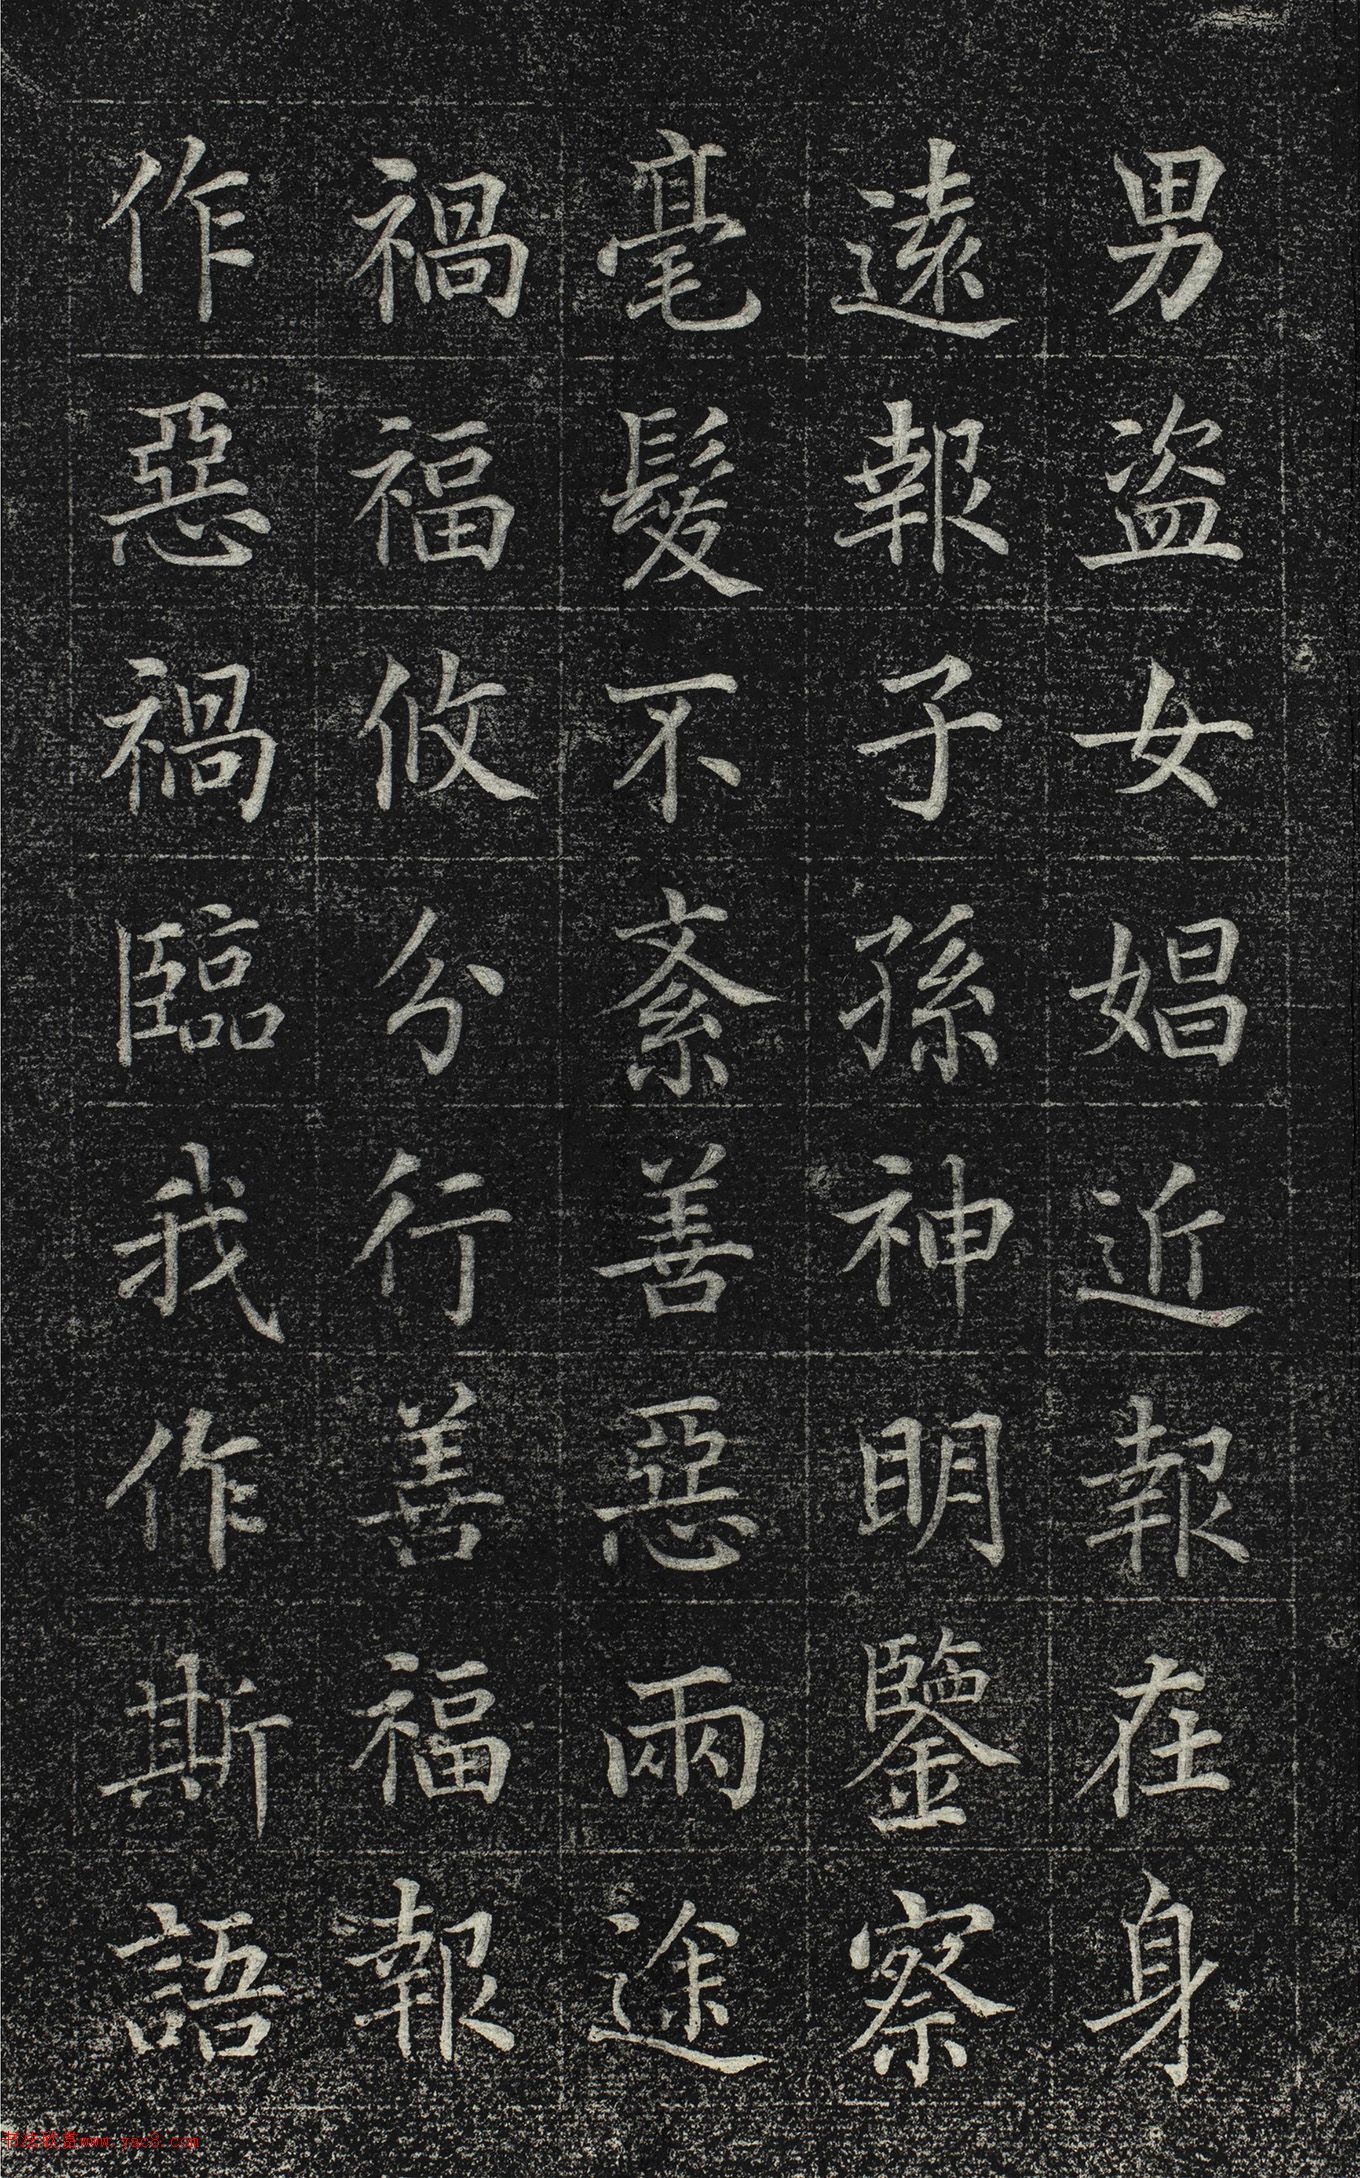 男盜女娼近報在身
遠報子孫神明鑒察
毫髮不紊善惡兩途
禍福攸分行善福報
作惡禍臨我作斯語
书法欣赏www.yac8.com